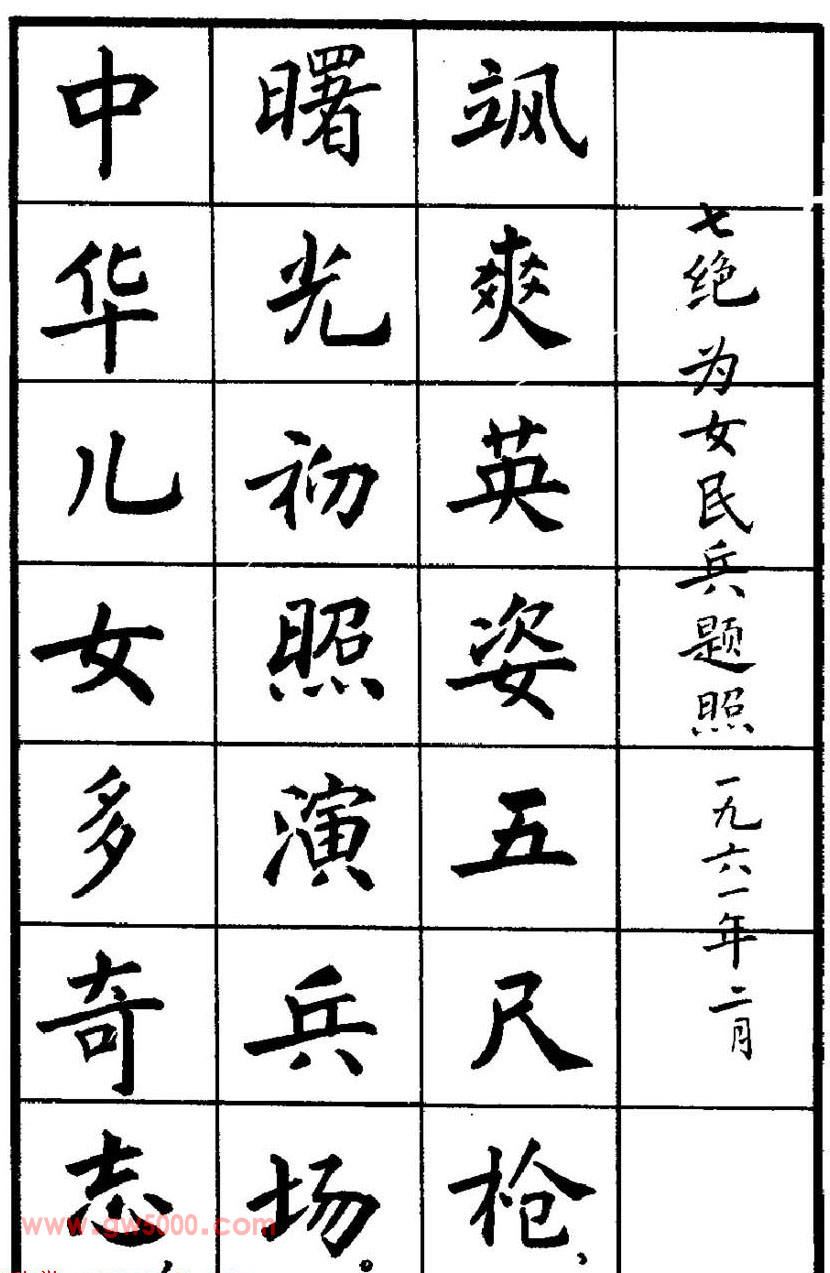 七绝 为女民兵题照 一九六一年二月
飒爽英姿五尺枪，
曙光初照演兵场。
中华儿女多奇志
www.gw5000.com